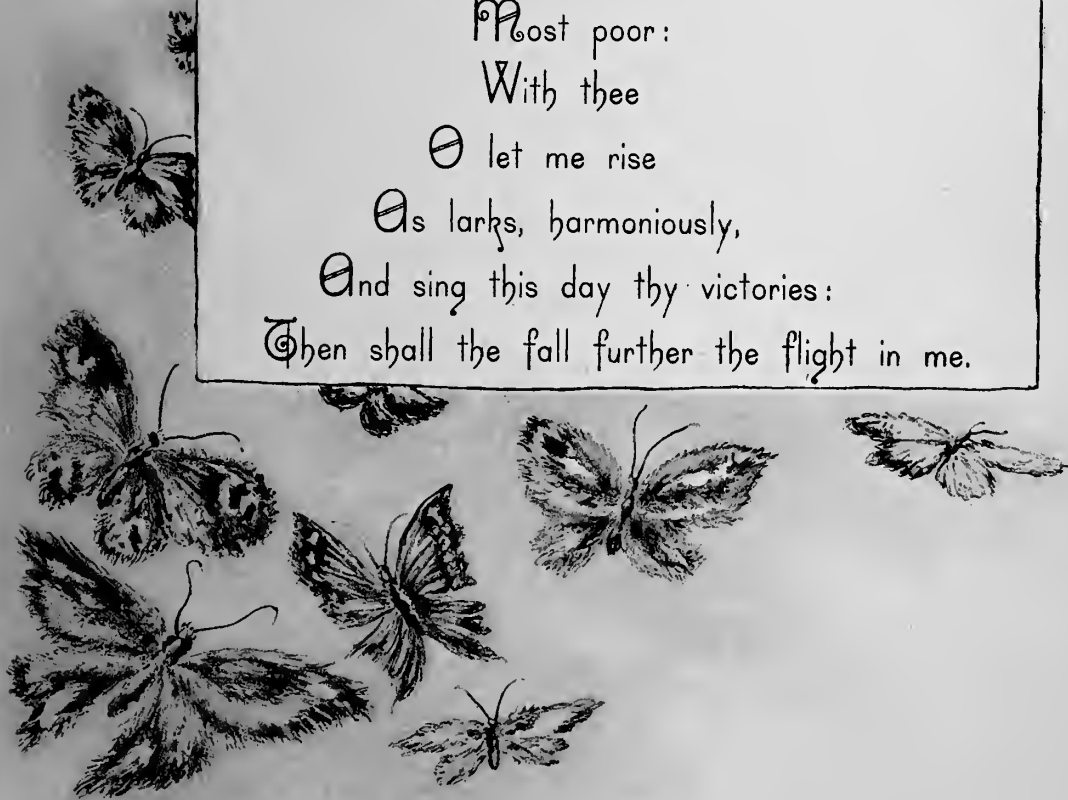 Most poor:
With thee
O let me rise
As larks, harmoniously,
And sing this day thy victories:
Then shall the fall further the flight in me.